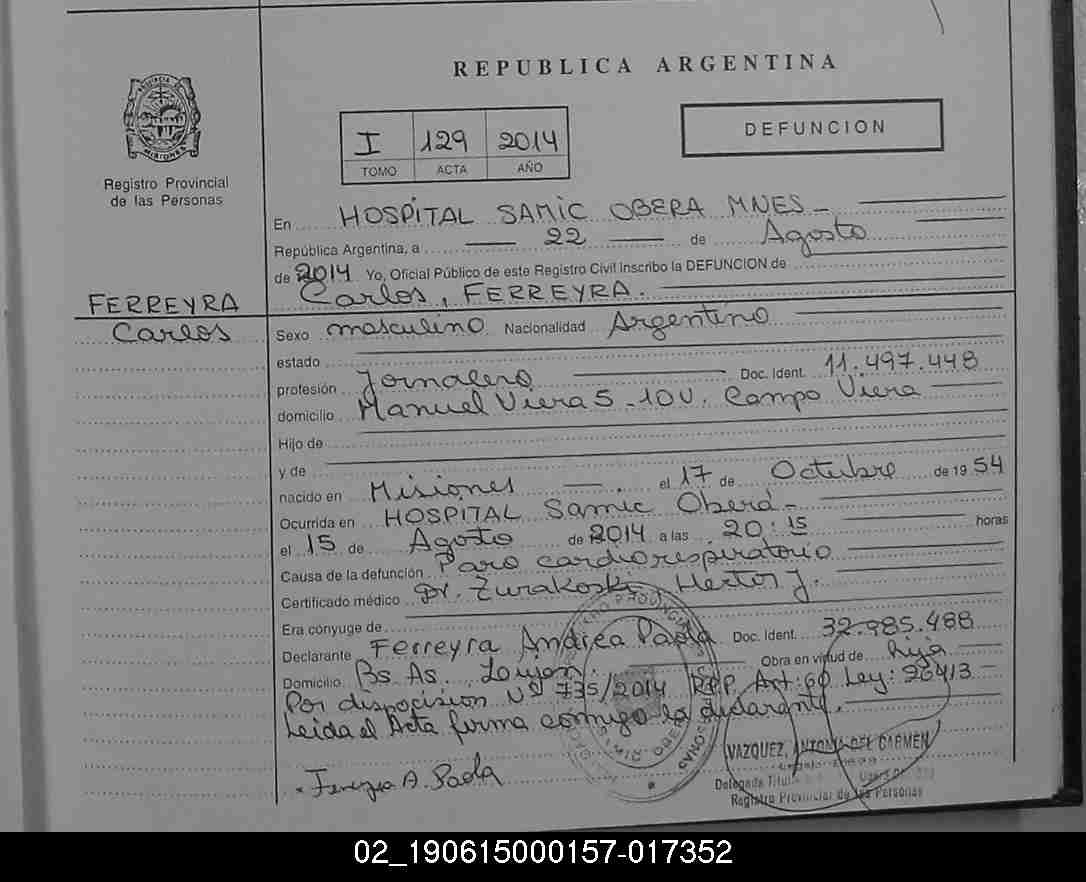 REPUBLICA ARGENTINA
PROVINCIA DE MISIONES
Registro Provincial
de las Personas
I 129 2014
TOMO ACTA AÑO
DEFUNCION
En HOSPITAL SAMIC OBERA MNES
República Argentina, a 22 de Agosto
de 2014 Yo, Oficial Público de este Registro Civil inscribo la DEFUNCION de
Carlos, FERREYRA.
FERREYRA
Carlos
Sexo masculino Nacionalidad Argentino
estado
profesión Jornalero Doc. Ident. 11.497.448
domicilio Manuel Viera S-10 V. Campo Viera
Hijo de
y de
nacido en Misiones el 17 de Octubre de 1954
Ocurrida en HOSPITAL Samic Oberá
el 15 de Agosto de 2014 a las 20:15 horas
Causa de la defunción Paro cardiorespiratorio
Certificado médico Dr. Zurakoski Hector J.
Era cónyuge de
Declarante Ferreyra Andrea Paola Doc. Ident. 32.985.488
Domicilio Bs. As. Lujan. Obra en virtud de hija
Por disposición Nº 735/2014 RPP. Art: 60 Ley: 26413
Leida el Acta firma conmigo la declarante.
Ferreyra A. Paola
VAZQUEZ, ANTONIA DEL CARMEN
Delegada Titular
Registro Provincial de las Personas
SAMIC OBERA
02_190615000157-017352